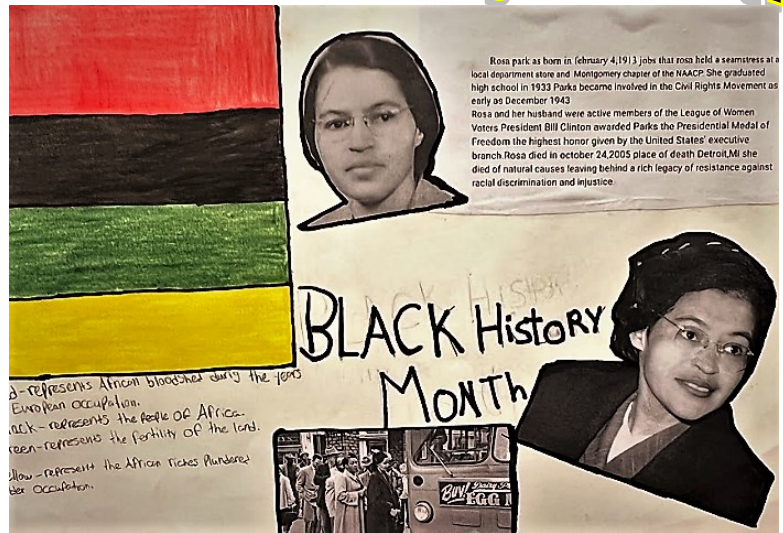 Rosa park as born in february 4,1913 jobs that rosa held a seamstress at a
local department store and Montgomery chapter of the NAACP She graduated
high school in 1933 Parks became involved in the Civil Rights Movement as
early as December 1943
Rosa and her husband were active members of the League of Women
Voters President Bill Clinton awarded Parks the Presidential Medal of
Freedom the highest honor given by the United States' executive
branch.Rosa died in october 24,2005 place of death Detroit,MI she
died of natural causes leaving behind a rich legacy of resistance against
racial discrimination and injustice
BLACK History
MONTH
d-represents African bloodshed during the years
European occupation.
ack-represents the people of Africa.
reen-represents the fertility of the land.
llow-represent the African riches plundered
der occupation.
BUY! Dairy
EGG